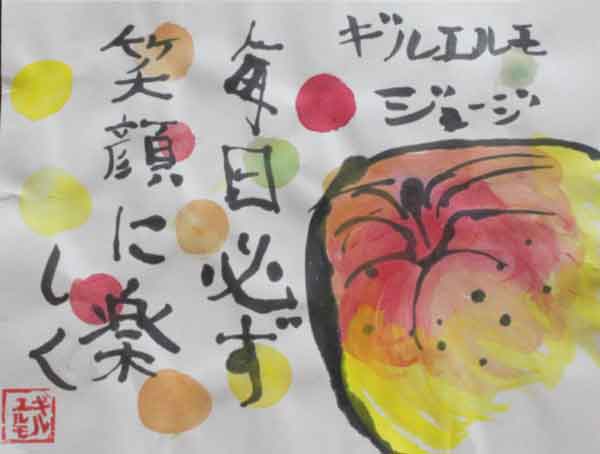 ギルエルモ
ジョージ
毎日必ず
笑顔に楽
しく
ギル
エルモ